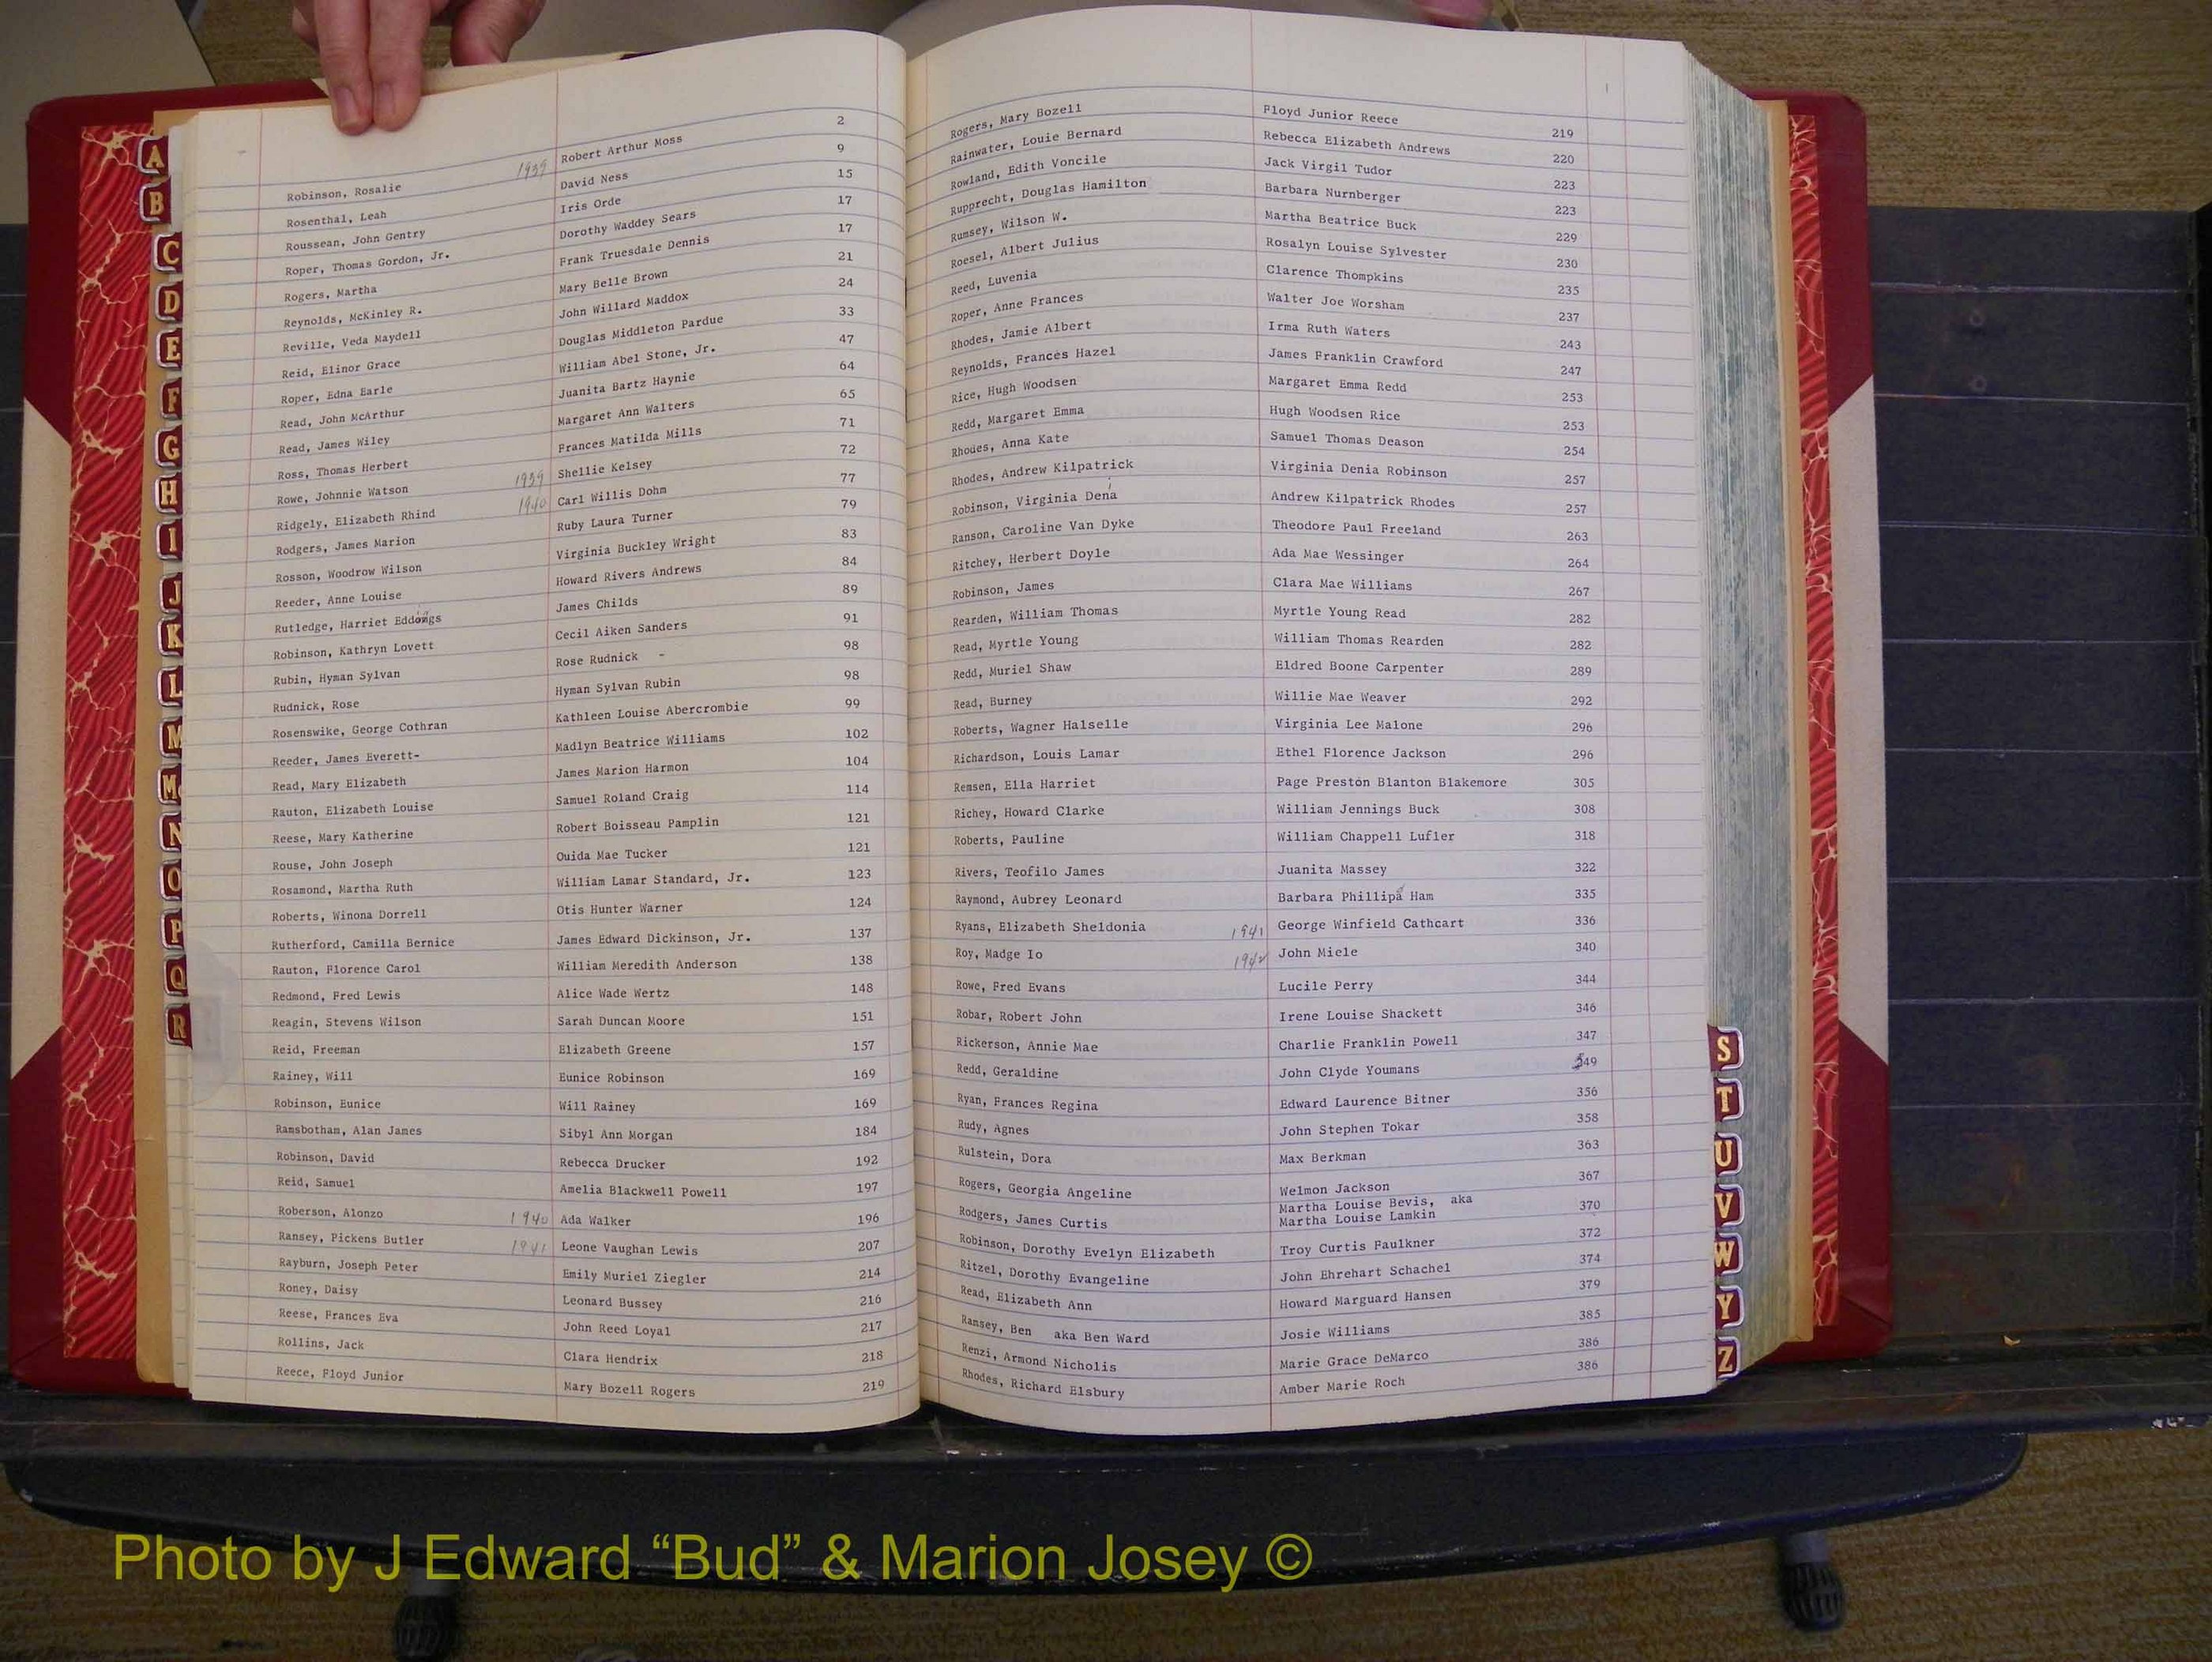 A
B
C
D
E
F
G
H
I
J
K
L
M
Mc
N
O
P
Q
R
Robinson, Rosalie 1939 Robert Arthur Moss 2
Rosenthal, Leah David Ness 9
Roussean, John Gentry Iris Orde 15
Roper, Thomas Gordon, Jr. Dorothy Waddey Sears 17
Rogers, Martha Frank Truesdale Dennis 17
Reynolds, McKinley R. Mary Belle Brown 21
Reville, Veda Maydell John Willard Maddox 24
Reid, Elinor Grace Douglas Middleton Pardue 33
Roper, Edna Earle William Abel Stone, Jr. 47
Read, John McArthur Juanita Bartz Haynie 64
Read, James Wiley Margaret Ann Walters 65
Ross, Thomas Herbert Frances Matilda Mills 71
Rowe, Johnnie Watson 1939 Shellie Kelsey 72
Ridgely, Elizabeth Rhind 1940 Carl Willis Dohm 77
Rodgers, James Marion Ruby Laura Turner 79
Rosson, Woodrow Wilson Virginia Buckley Wright 83
Reeder, Anne Louise Howard Rivers Andrews 84
Rutledge, Harriet Eddings James Childs 89
Robinson, Kathryn Lovett Cecil Aiken Sanders 91
Rubin, Hyman Sylvan Rose Rudnick - 98
Rudnick, Rose Hyman Sylvan Rubin 98
Rosenswike, George Cothran Kathleen Louise Abercrombie 99
Reeder, James Everett- Madlyn Beatrice Williams 102
Read, Mary Elizabeth James Marion Harmon 104
Rauton, Elizabeth Louise Samuel Roland Craig 114
Reese, Mary Katherine Robert Boisseau Pamplin 121
Rouse, John Joseph Ouida Mae Tucker 121
Rosamond, Martha Ruth William Lamar Standard, Jr. 123
Roberts, Winona Dorrell Otis Hunter Warner 124
Rutherford, Camilla Bernice James Edward Dickinson, Jr. 137
Rauton, Florence Carol William Meredith Anderson 138
Redmond, Fred Lewis Alice Wade Wertz 148
Reagin, Stevens Wilson Sarah Duncan Moore 151
Reid, Freeman Elizabeth Greene 157
Rainey, Will Eunice Robinson 169
Robinson, Eunice Will Rainey 169
Ramsbotham, Alan James Sibyl Ann Morgan 184
Robinson, David Rebecca Drucker 192
Reid, Samuel Amelia Blackwell Powell 197
Roberson, Alonzo 1940 Ada Walker 196
Ransey, Pickens Butler 1941 Leone Vaughan Lewis 207
Rayburn, Joseph Peter Emily Muriel Ziegler 214
Roney, Daisy Leonard Bussey 216
Reese, Frances Eva John Reed Loyal 217
Rollins, Jack Clara Hendrix 218
Reece, Floyd Junior Mary Bozell Rogers 219
Rogers, Mary Bozell Floyd Junior Reece 219
Rainwater, Louie Bernard Rebecca Elizabeth Andrews 220
Rowland, Edith Voncile Jack Virgil Tudor 223
Rupprecht, Douglas Hamilton Barbara Nurnberger 223
Rumsey, Wilson W. Martha Beatrice Buck 229
Roesel, Albert Julius Rosalyn Louise Sylvester 230
Reed, Luvenia Clarence Thompkins 235
Roper, Anne Frances Walter Joe Worsham 237
Rhodes, Jamie Albert Irma Ruth Waters 243
Reynolds, Frances Hazel James Franklin Crawford 247
Rice, Hugh Woodsen Margaret Emma Redd 253
Redd, Margaret Emma Hugh Woodsen Rice 253
Rhodes, Anna Kate Samuel Thomas Deason 254
Rhodes, Andrew Kilpatrick Virginia Denia Robinson 257
Robinson, Virginia Denia Andrew Kilpatrick Rhodes 257
Ranson, Caroline Van Dyke Theodore Paul Freeland 263
Ritchey, Herbert Doyle Ada Mae Wessinger 264
Robinson, James Clara Mae Williams 267
Rearden, William Thomas Myrtle Young Read 282
Read, Myrtle Young William Thomas Rearden 282
Redd, Muriel Shaw Eldred Boone Carpenter 289
Read, Burney Willie Mae Weaver 292
Roberts, Wagner Halselle Virginia Lee Malone 296
Richardson, Louis Lamar Ethel Florence Jackson 296
Remsen, Ella Harriet Page Preston Blanton Blakemore 305
Richey, Howard Clarke William Jennings Buck 308
Roberts, Pauline William Chappell Lufler 318
Rivers, Teofilo James Juanita Massey 322
Raymond, Aubrey Leonard Barbara Phillipa Ham 335
Ryans, Elizabeth Sheldonia 1941 George Winfield Cathcart 336
Roy, Madge Io 1942 John Miele 340
Rowe, Fred Evans Lucile Perry 344
Robar, Robert John Irene Louise Shackett 346
Rickerson, Annie Mae Charlie Franklin Powell 347
Redd, Geraldine John Clyde Youmans 349
Ryan, Frances Regina Edward Laurence Bitner 356
Rudy, Agnes John Stephen Tokar 358
Rulstein, Dora Max Berkman 363
Rogers, Georgia Angeline Welmon Jackson 367
Rodgers, James Curtis Martha Louise Bevis, aka 370
Martha Louise Lamkin
Robinson, Dorothy Evelyn Elizabeth Troy Curtis Faulkner 372
Ritzel, Dorothy Evangeline John Ehrehart Schachel 374
Read, Elizabeth Ann Howard Marguard Hansen 379
Ramsey, Ben aka Ben Ward Josie Williams 385
Renzi, Armond Nicholis Marie Grace DeMarco 386
Rhodes, Richard Elsbury Amber Marie Roch 386
S
T
U
V
W
Y
Z
Photo by J Edward “Bud” & Marion Josey ©